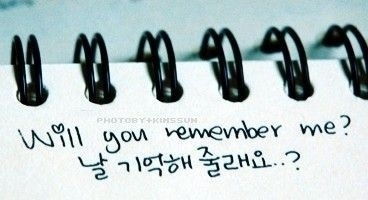 PHOTOBY+KINSSUN
Will you remember me?
날 기억해 줄래요..?